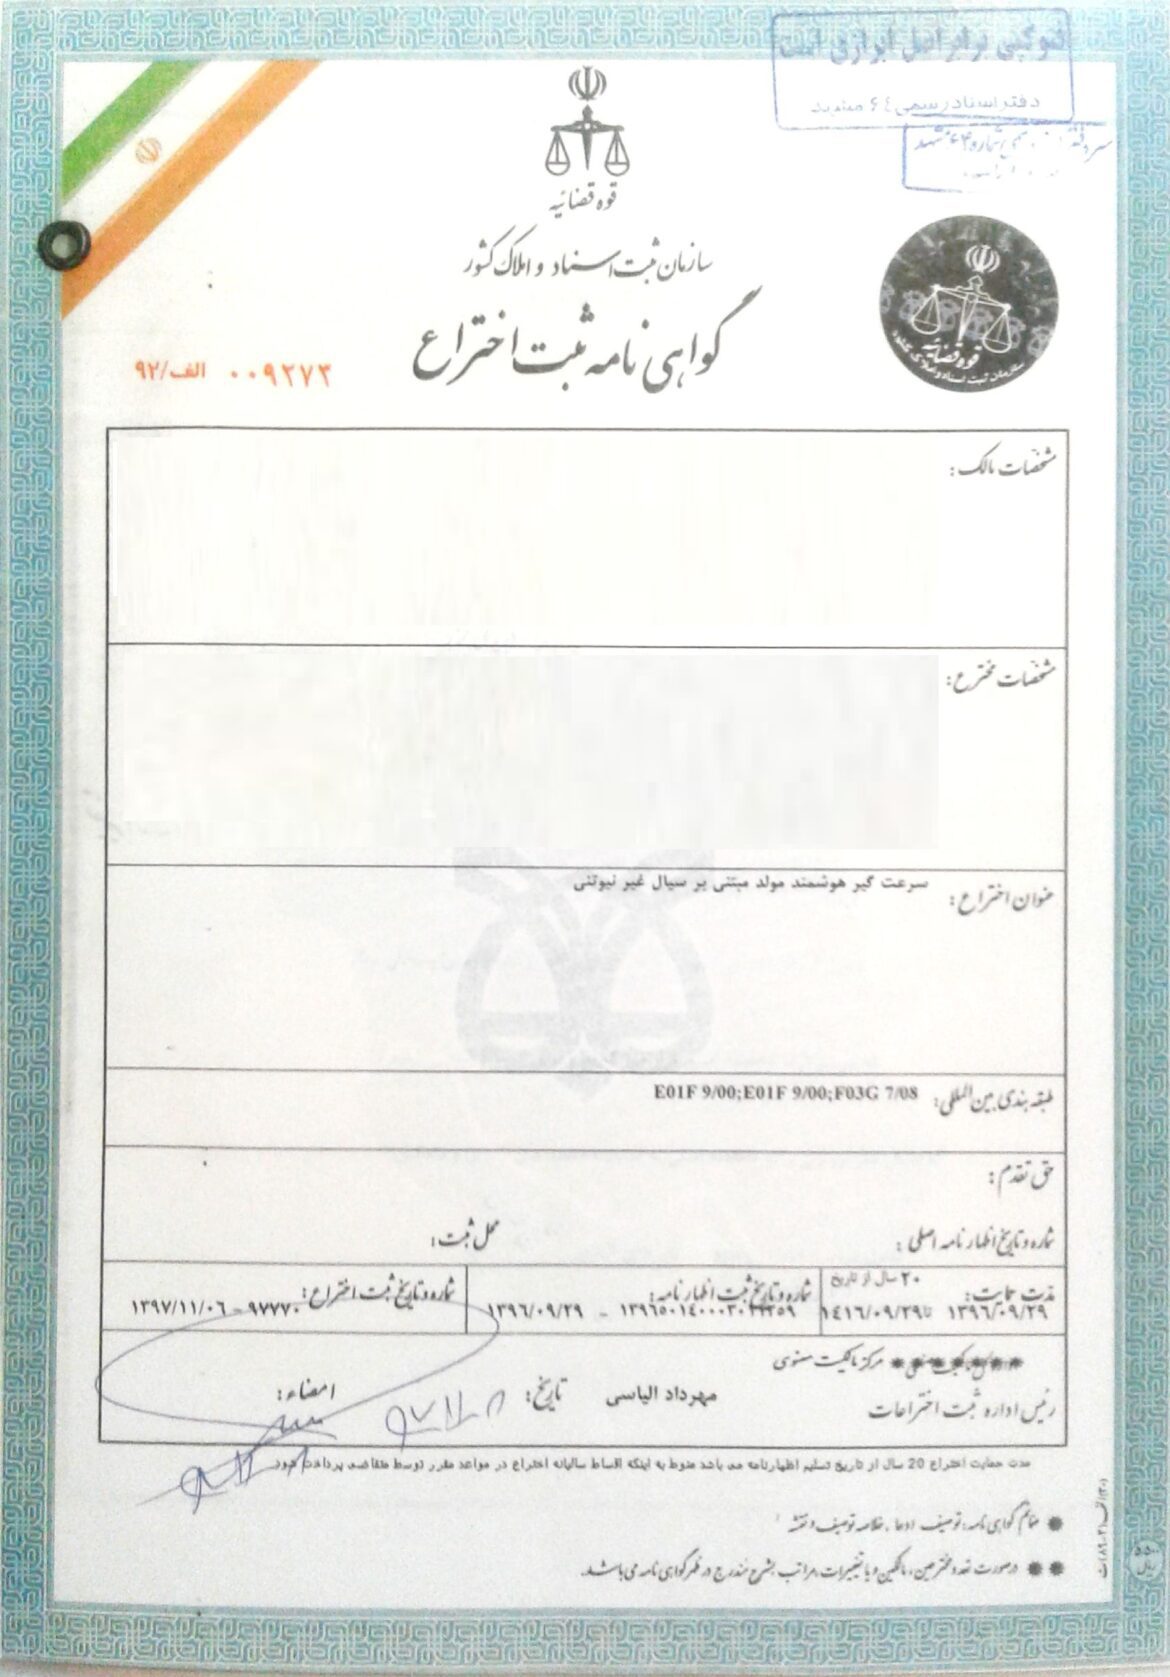 فتوکپی برابر اصل ابرازی است
دفتر اسناد رسمی ۶۴ مشهد
سردفتر شماره ۶۴ مشهد
قوه قضائیه
سازمان ثبت اسناد و املاک کشور
گواهی نامه ثبت اختراع
۰۰۹۲۷۳ الف/۹۲
قوه قضائیه
سازمان ثبت اسناد و املاک کشور
مشخصات مالک :
مشخصات مخترع :
عنوان اختراع : سرعت گیر هوشمند مولد مبتنی بر سیال غیر نیوتنی
طبقه بندی بین المللی : E01F 9/00;E01F 9/00;F03G 7/08
حق تقدم :
شماره و تاریخ اظهارنامه اصلی : محل ثبت :
مدت حمایت : ۲۰ سال از تاریخ
۱۳۹۶/۰۹/۲۹ تا ۱۴۱۶/۰۹/۲۹
شماره و تاریخ ثبت اظهارنامه :
۱۳۹۶۵۰۱۴۰۰۰۳۰۲۲۳۵۹ - ۱۳۹۶/۰۹/۲۹
شماره و تاریخ ثبت اختراع :
۹۷۷۷۰ - ۱۳۹۷/۱۱/۰۶
مرکز مالکیت معنوی
رئیس اداره ثبت اختراعات مهرداد الیاسی تاریخ : ۹۷/۱۱/۰۸ امضاء :
مدت حمایت اختراع 20 سال از تاریخ تسلیم اظهارنامه می باشد منوط به اینکه اقساط سالیانه اختراع در مواعد مقرر توسط متقاضی پرداخت شود
✹ ضمائم گواهی نامه : توصیف ، ادعا ، خلاصه توصیف و نقشه
✹ ✹ درصورت تعدد مخترعین ، مالکین و یا تغییرات ، مراتب بشرح مندرج در ظهر گواهی نامه می باشد.